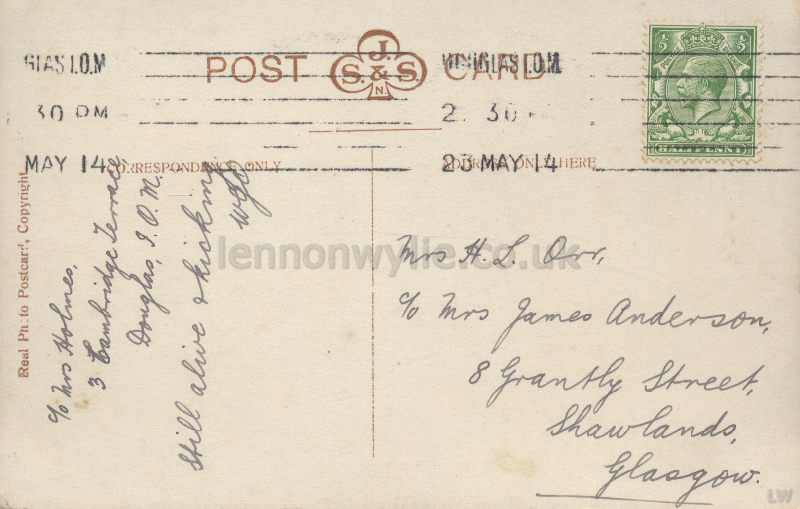 GLAS I.O.M
30 PM
MAY 14
POST CARD
J.
S. & S.
N.
DOUGLAS I.O.M.
2. 30
23 MAY 14
HALFPENNY
CORRESPONDENCE ONLY
ADDRESS ONLY HERE
Real Photo Postcard, Copyright
c/o Mrs Holmes,
3 Cambridge Terrace,
Douglas, I.O.M.
Still alive & kicking
lennonwylie.co.uk
Mrs H. L. Orr,
c/o Mrs James Anderson,
8 Grantly Street,
Shawlands,
Glasgow.
LW